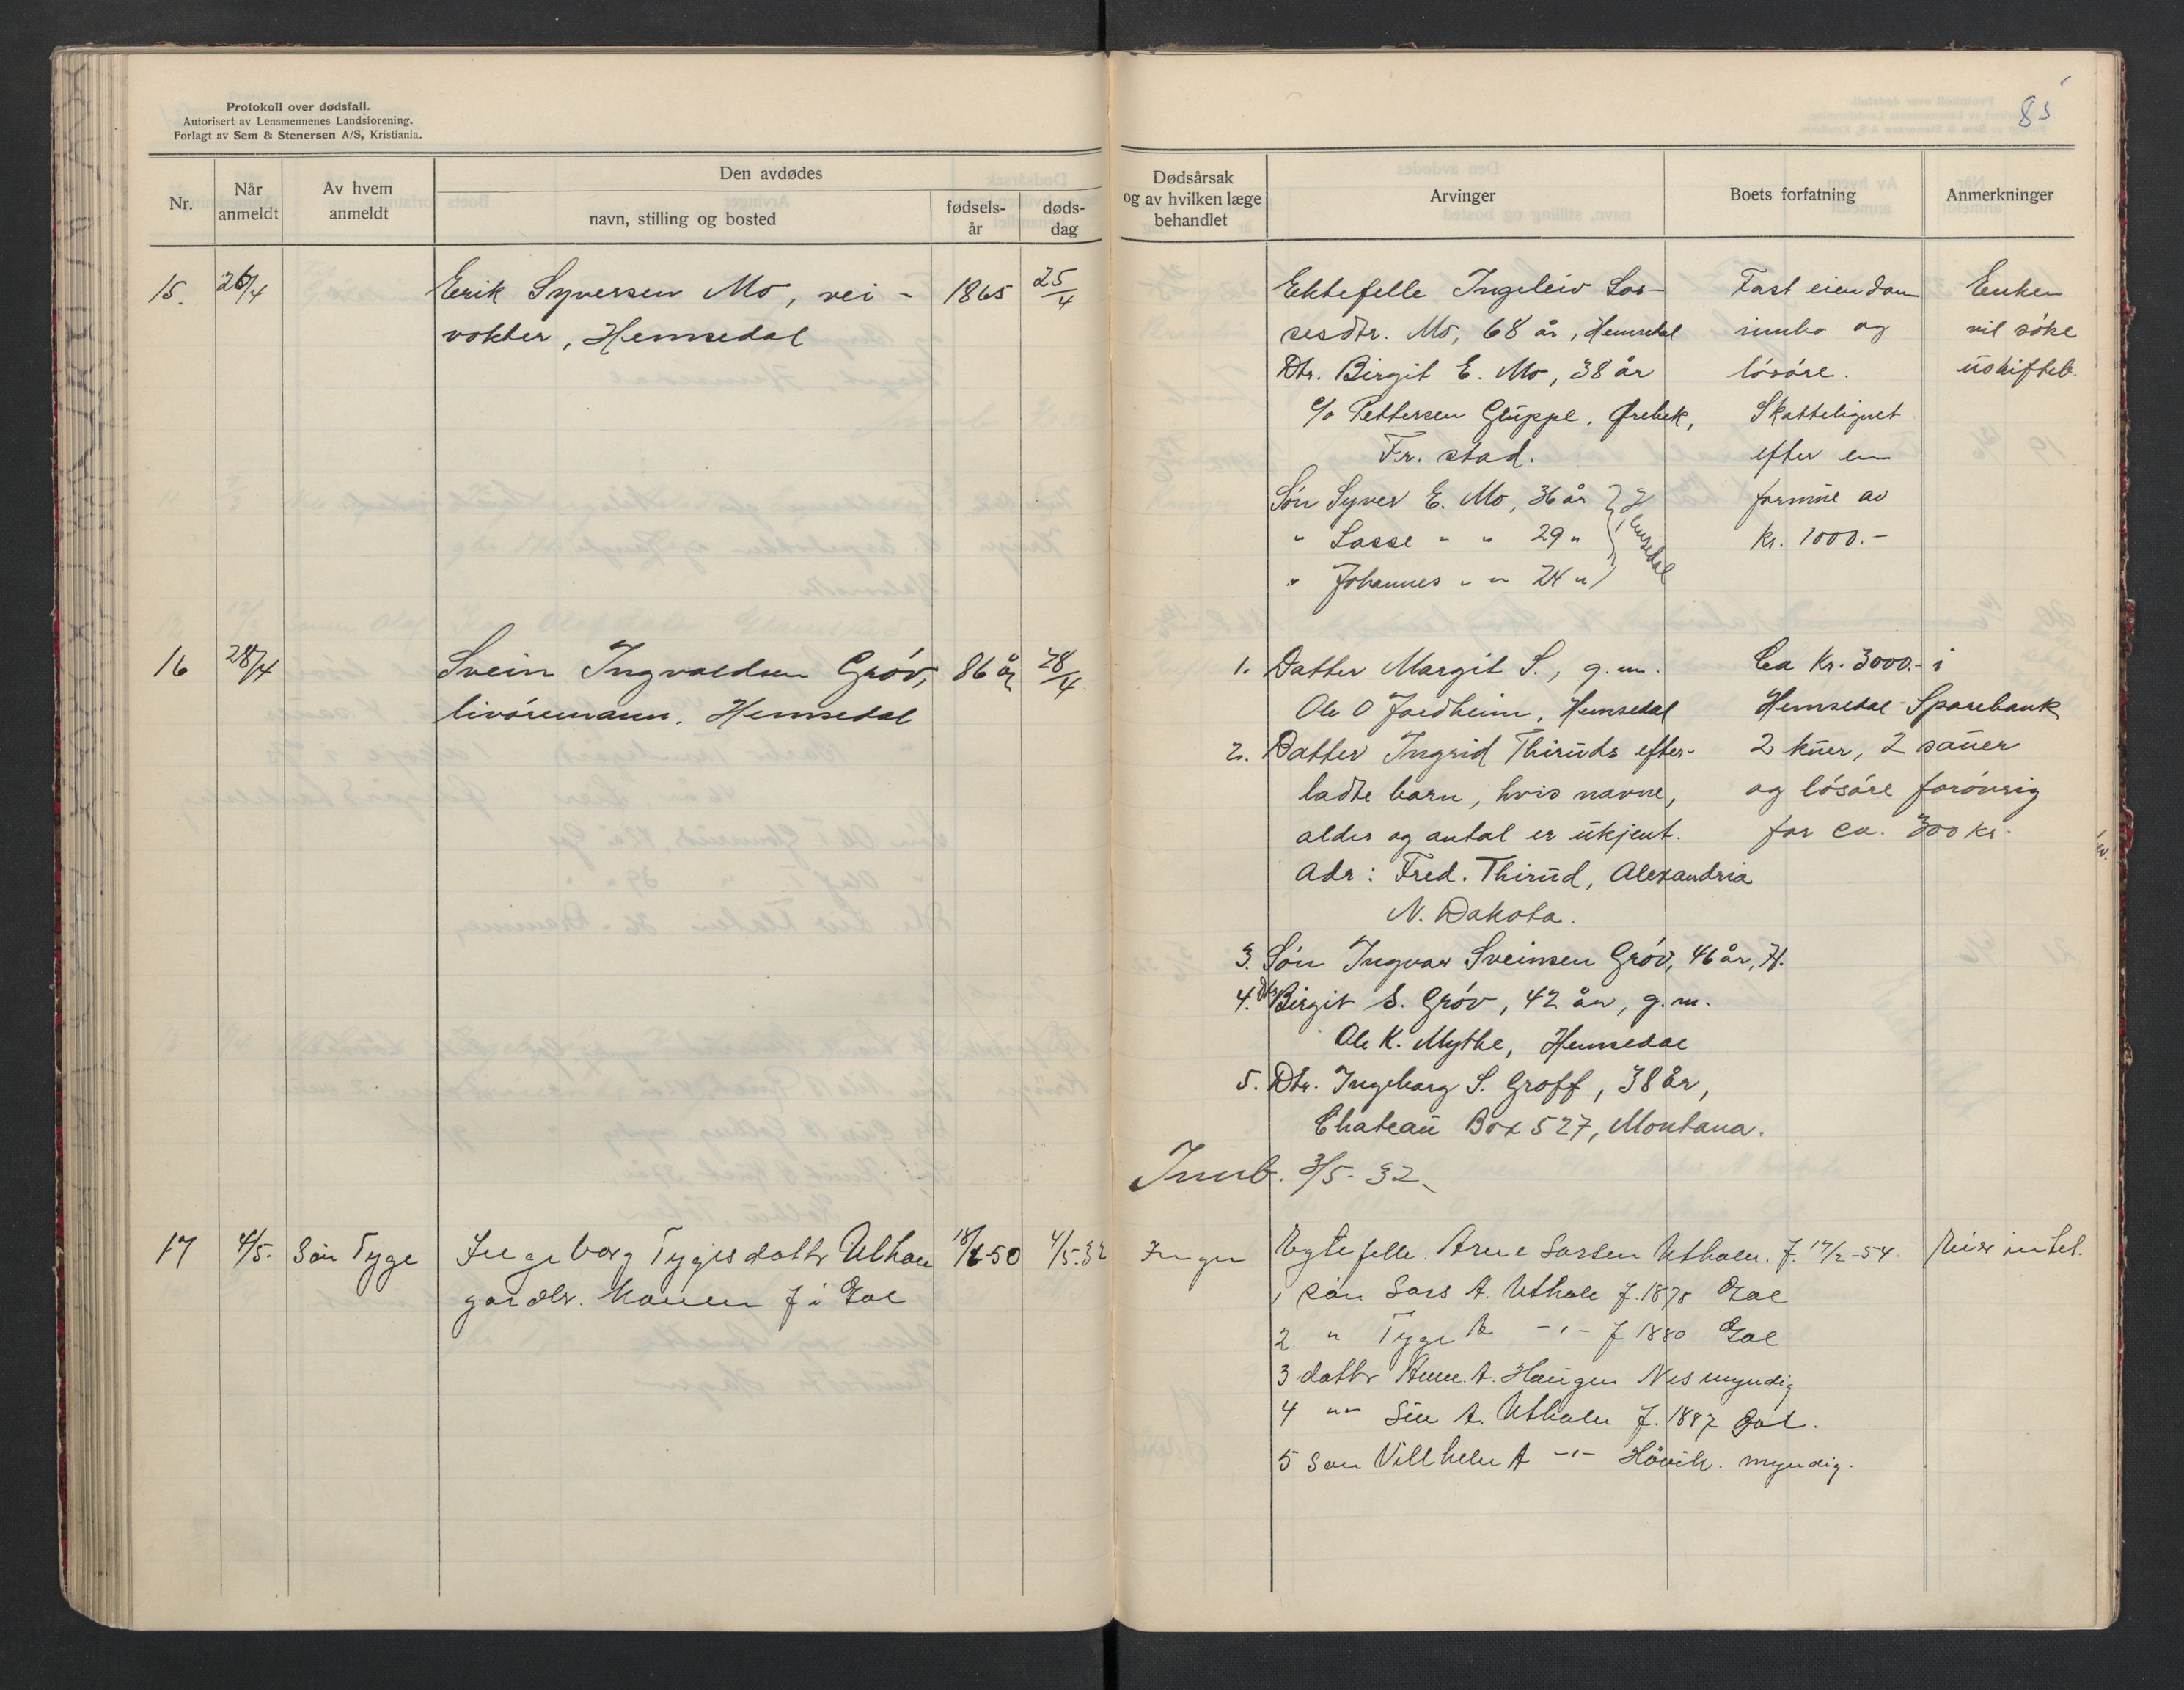 Protokoll over dødsfall.
Autorisert av Lensmennenes Landsforening.
Forlagt av Sem & Stenersen A/S, Kristiania.
85
Nr.
Når anmeldt
Av hvem anmeldt
Den avdødes
navn, stilling og bosted
fødsels-år
døds-dag
Dødsårsak og av hvilken læge behandlet
Arvinger
Boets forfatning
Anmerkninger
15. 26/4 Erik Syversen Mo, vei- 1865 25/4
vokter, Hemsedal
Ektefelle Ingeleiv Las-
sesdtr. Mo, 68 år, Hemsedal
Dtr. Birgit E. Mo, 38 år
c/o Pettersen Gluppe, Ørebek,
Fr. stad.
Søn Syver E. Mo, 36 år
" Lasse " " 29 "
" Johannes " " 24 "
Hemsedal
Fast eiendom
innbo og
løsøre.
Skattelignet
efter en
formue av
kr. 1000.-
Enken
vil søke
uskifteb.
16 28/4 Svein Ingvaldsen Grøv, 86 år 28/4
livøremann, Hemsedal
1. Datter Margit S., g.m.
Ole O Jordheim, Hemsedal
2. Datter Ingrid Thiruds efter-
ladte barn, hvis navne,
alder og antal er ukjent.
Adr: Fred. Thirud, Alexandria
N. Dakota.
3. Søn Ingvar Sveinsen Grøv, 46 år, H.
4. Dtr Birgit S. Grøv, 42 år, g.m.
Ole K. Mythe, Hemsedal
5. Dtr. Ingeborg S. Groff, 38 år,
Chateau Box 527, Montana.
Ca kr. 3000.- i
Hemsedal Sparebank
2 kuer, 2 sauer
og løsøre forøvrig
for ca. 300 kr.
Innb. 3/5-32.
17 4/5. Søn Tyge Ingeborg Tygesdattr Uthau 18/6-50 4/5-32
gardbr. konen f i Gol
Ingen
Egtefelle. Arne Larsen Uthalen. f. 17/2-54.
1 søn Lars A. Uthale f. 1878 Gol
2. " Tyge A -"- f 1880 Gol
3 dattr Anne. A. Haugen Nes myndig
4 "" Siu A. Uthalen f. 1887 Gol.
5 Søn Villhelm A -"- Høvik. myndig.
Eier intet.